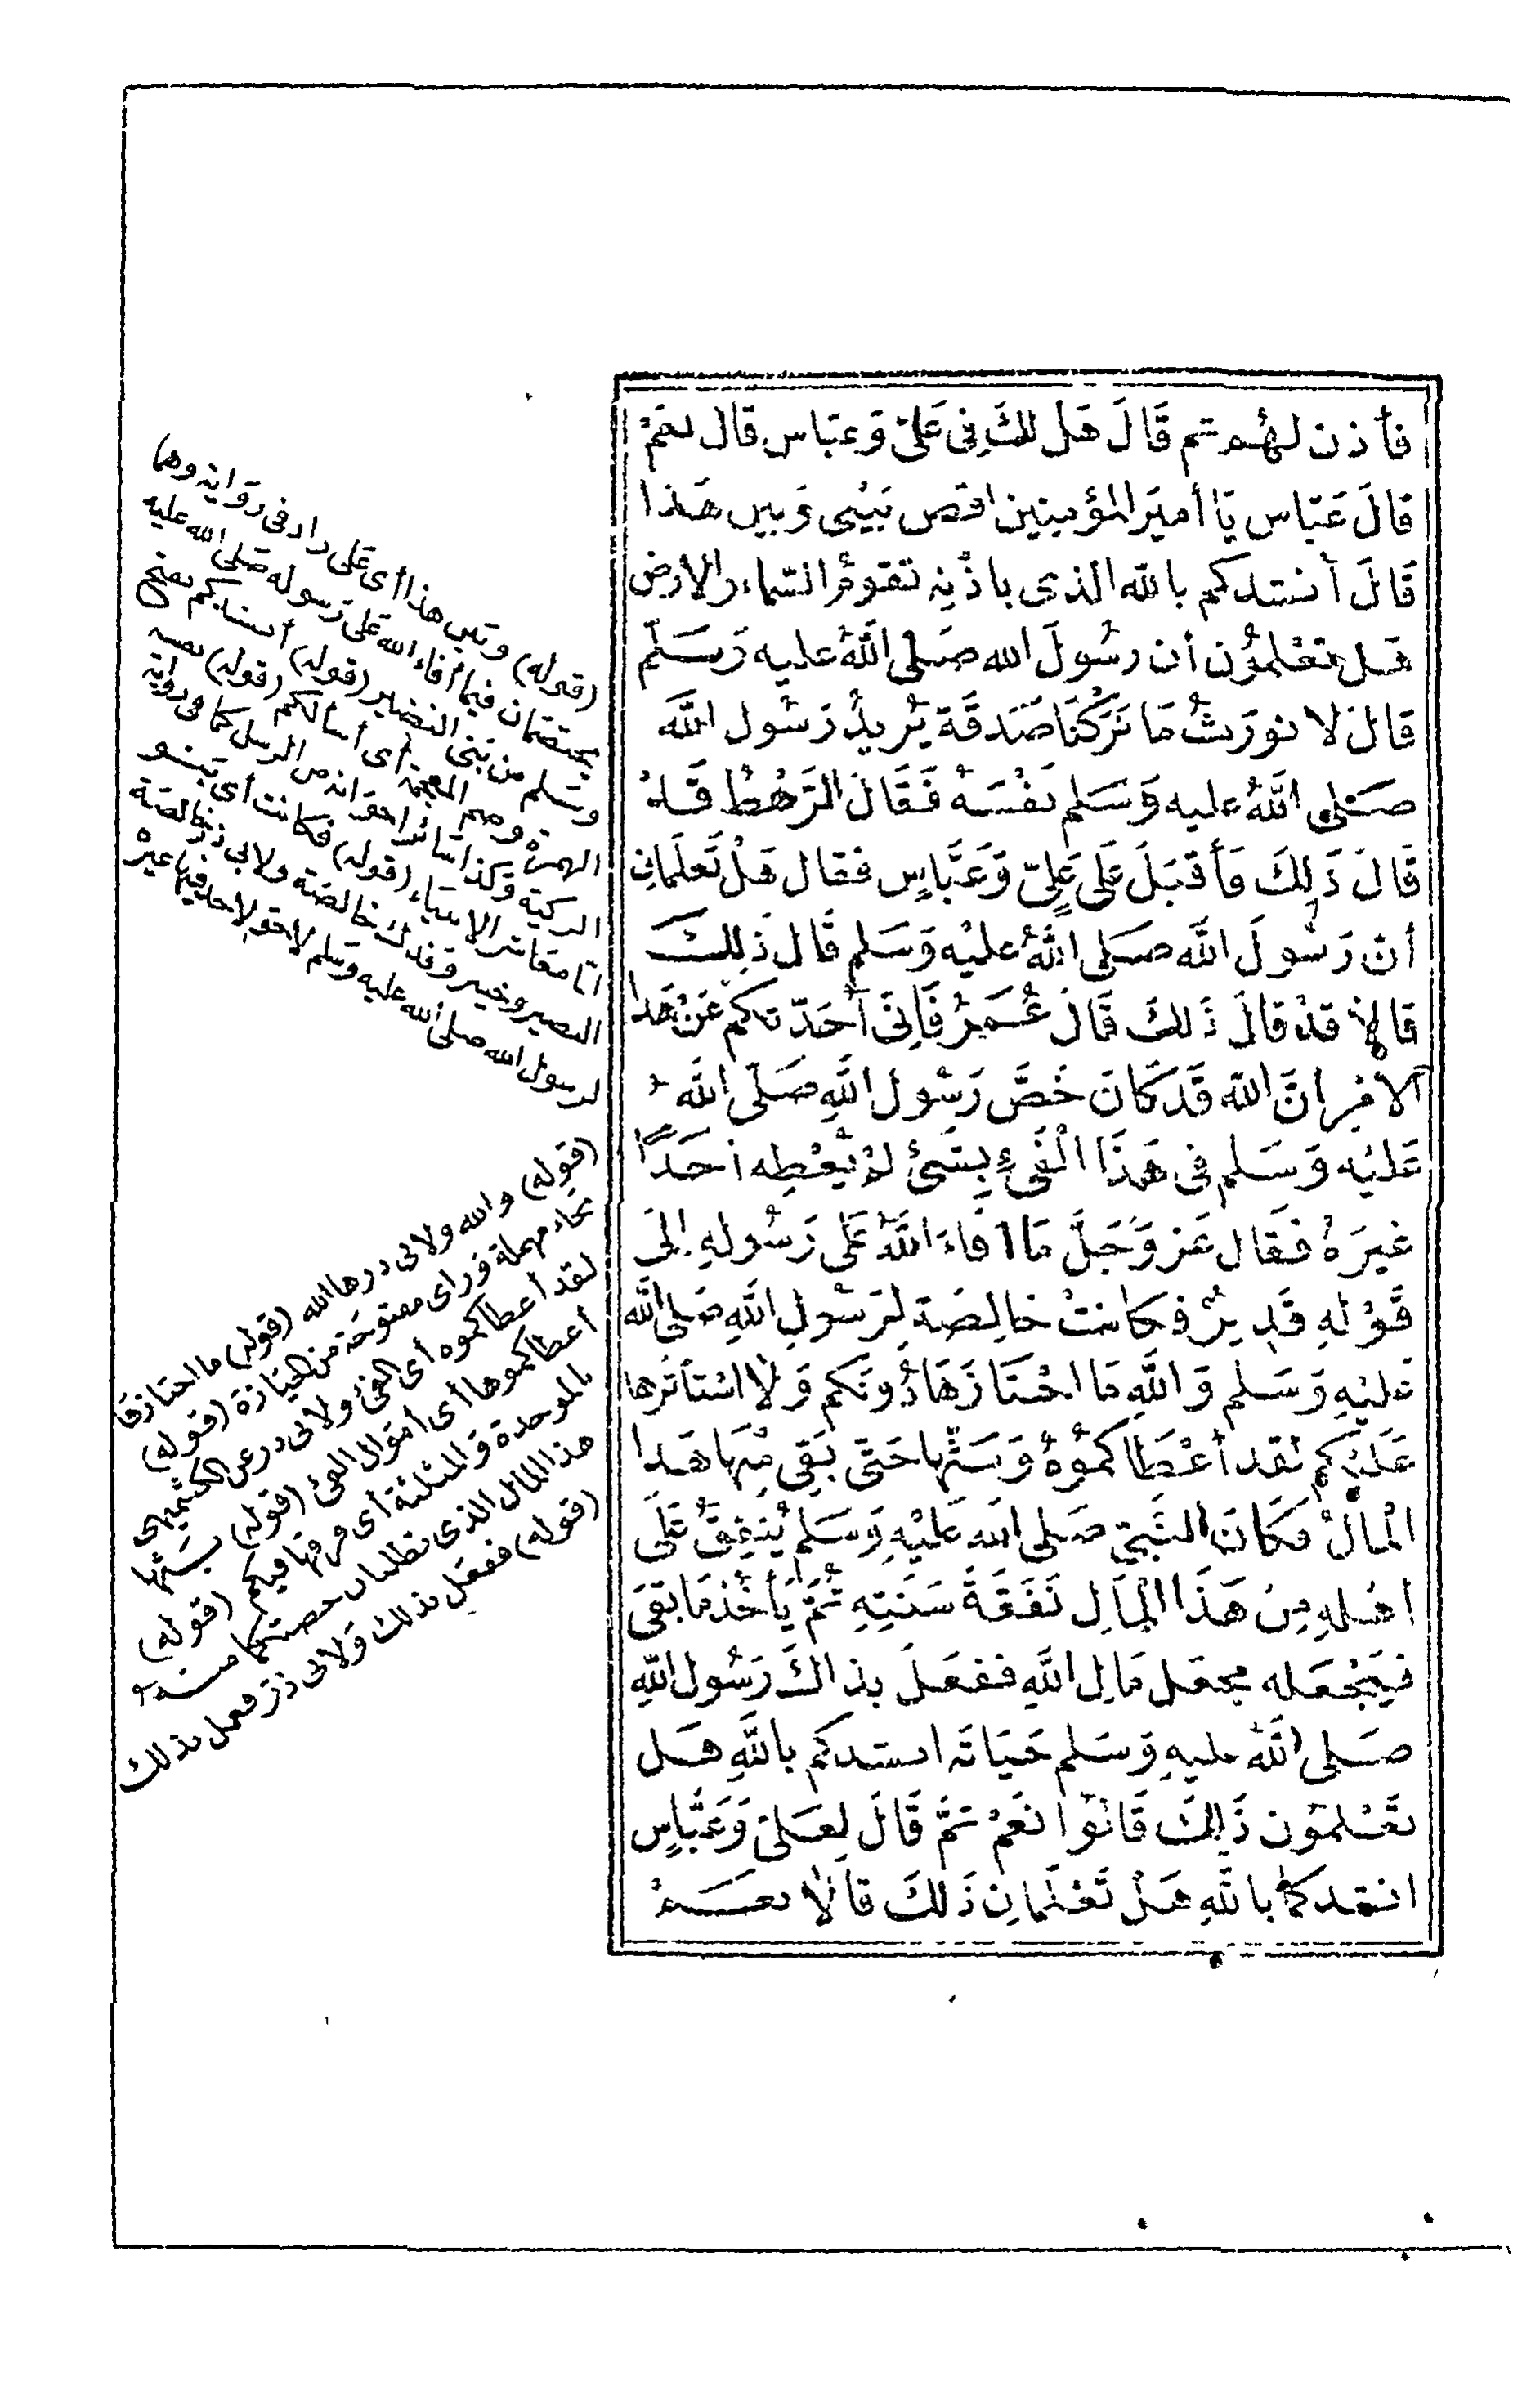 فأذن لهُم ثم قَالَ هَل لكَ فِى عَلىّ وَعبّاس قال نعَمْ
قالَ عَبّاس يَا أميَر المؤمِنين اقض بَيْنِى وَبين هَذا
قَالَ أنشدكم بالله الذى باذْنِه تقومُ السَّماء والارض
هَل تعْلمُون أن رسُولَ الله صَلى اللَّهُ عليه وَسَلّم
قالَ لا نورَثُ مَا تَرَكْنَا صَدَقَة يُريدُ رَسُول اللَّه
صَلى اللَّهُ عليه وَسَلم نفْسَهُ فَقَالَ الرَّهْطُ قَدْ
قَالَ ذَلِكَ فَأقبَلَ عَلَى عَلِىّ وَعَبَّاسٍ فقال هَلْ تَعلَمانِ
أنّ رَسُولَ اللَّه صَلى اللَّهُ عليْه وَسَلم قَالَ ذَلِكَ
قالا قدْ قالَ ذَلكَ قَالَ عُمَرُ فَاِنّى أحَدّثكم عَنْ هَذا
الامْرِ انَّ اللَّه قَد كَانَ خَصَّ رَسُولَ اللَّهِ صَلّى اللَّهُ
عَليْه وَسَلم فى هَذَا الْفَىْءِ بِشىْءٍ لمْ يُعْطِه أحَدًا
غيرَهُ فقال عَز وَجَلَّ مَا افاءَ اللَّهُ عَلى رَسُولهِ إلَى
قَوْلهِ قَدِيرٌ فكانتْ خالِصَة لِرَسُولِ اللَّهِ صَلى اللَّه
عَليْهِ وَسَلم وَاللَّهِ مَا احْتَازَهَا دُونَكم وَلا اسْتأثرها
عَليْكم لقد أعْطَاكمُوهُ وَبَثّها حَتّى بَقِى مِنْهَا هَذا
الْمالُ فكَانَ النَّبىّ صَلى الله عَليْهِ وَسَلم يُنفِقُ عَلَى
أهْلهِ مِنْ هَذَا الْمَالِ نَفَقَةَ سَنَتِهِ ثُمَّ يَأخُذ مَا بَقىَ
فيَجْعَله مجعَل مَالِ اللَّهِ ففعَلَ بذاكَ رَسُول اللَّهِ
صَلى اللَّهُ عليهِ وَسَلم حَيَاتَه انشدكم باللَّهِ هَل
تعْلمُون ذَلِكَ قَالُوا نَعَمْ ثمَّ قَالَ لِعَلىّ وَعَبَّاسٍ
انشدكما باللَّهِ هَلْ تَعْلَمانِ ذَلكَ قالا نعَمْ
(قوله) وبَين هذا أى عَلى زاد فى رواية وهما
يختصمَان فيما أفاء الله عَلى رَسوله صَلى الله عليه
وسَلم من بَنى النضير (قوله) أنشدكم بفتح
الهمزة وضم المعجمة أى أسألكم (قوله) نفسه
الزكية وَكذا سَائر اخوانه من الرسل كما فى رواية
انا معَاشر الانبياء (قوله) فكانت أى بَنو
النضير وخيبر وَفدك خالصَة ولابى ذر خالصَة
لرسول الله صلى الله عليه وسَلم لا حق لاحد فيها غيره
(قوله) والله ولابى ذر ها الله (قوله) ما احتازهَا
بحاء مهملة وزاى مفتوحَة من الحيَازة (قوله)
لقد أعطاكموه أى الفئ ولابى ذر عن الكشميهنى
أعطاكموها أى أموَال الفئ (قوله) بثها
بالموحدة وَالمثلثة أى فرقها فيكم (قوله)
هذا المال الذى تطلبان حصتكما منه
(قوله) ففعَل بذلك وَلابى ذرّ فعمل بذلك